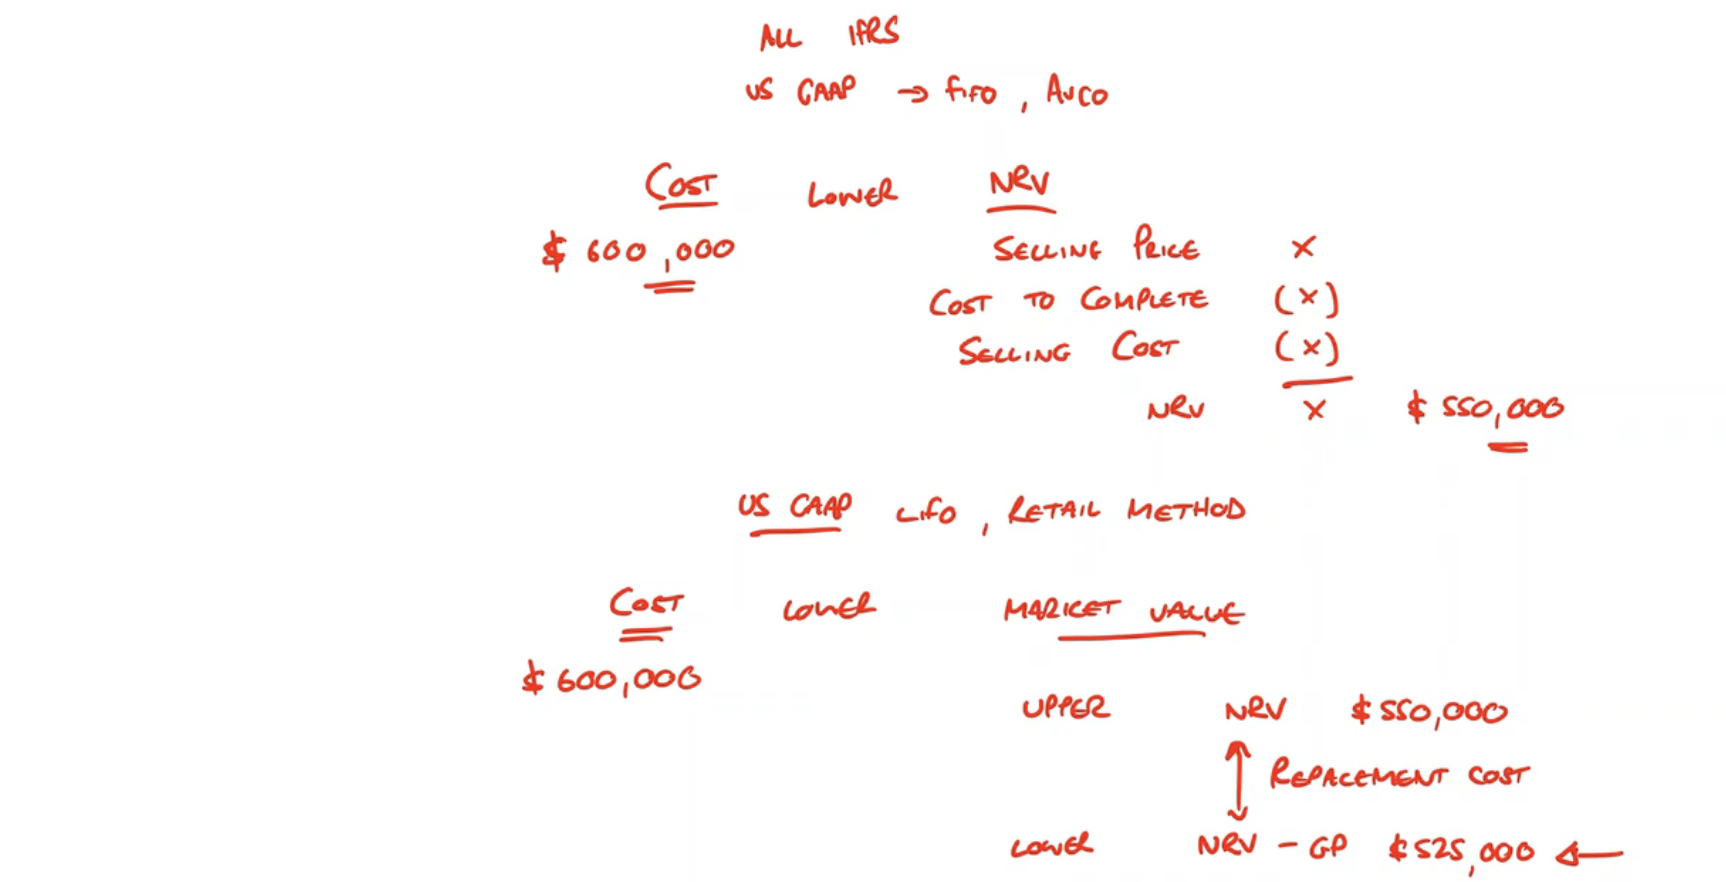 ALL IFRS
US GAAP → FIFO, AVCO
COST LOWER NRV
$ 600,000 SELLING PRICE X
COST TO COMPLETE (X)
SELLING COST (X)
NRV X $ 550,000
US GAAP LIFO, RETAIL METHOD
COST LOWER MARKET VALUE
$ 600,000
UPPER NRV $ 550,000
REPACEMENT COST
LOWER NRV - GP $ 525,000 ←